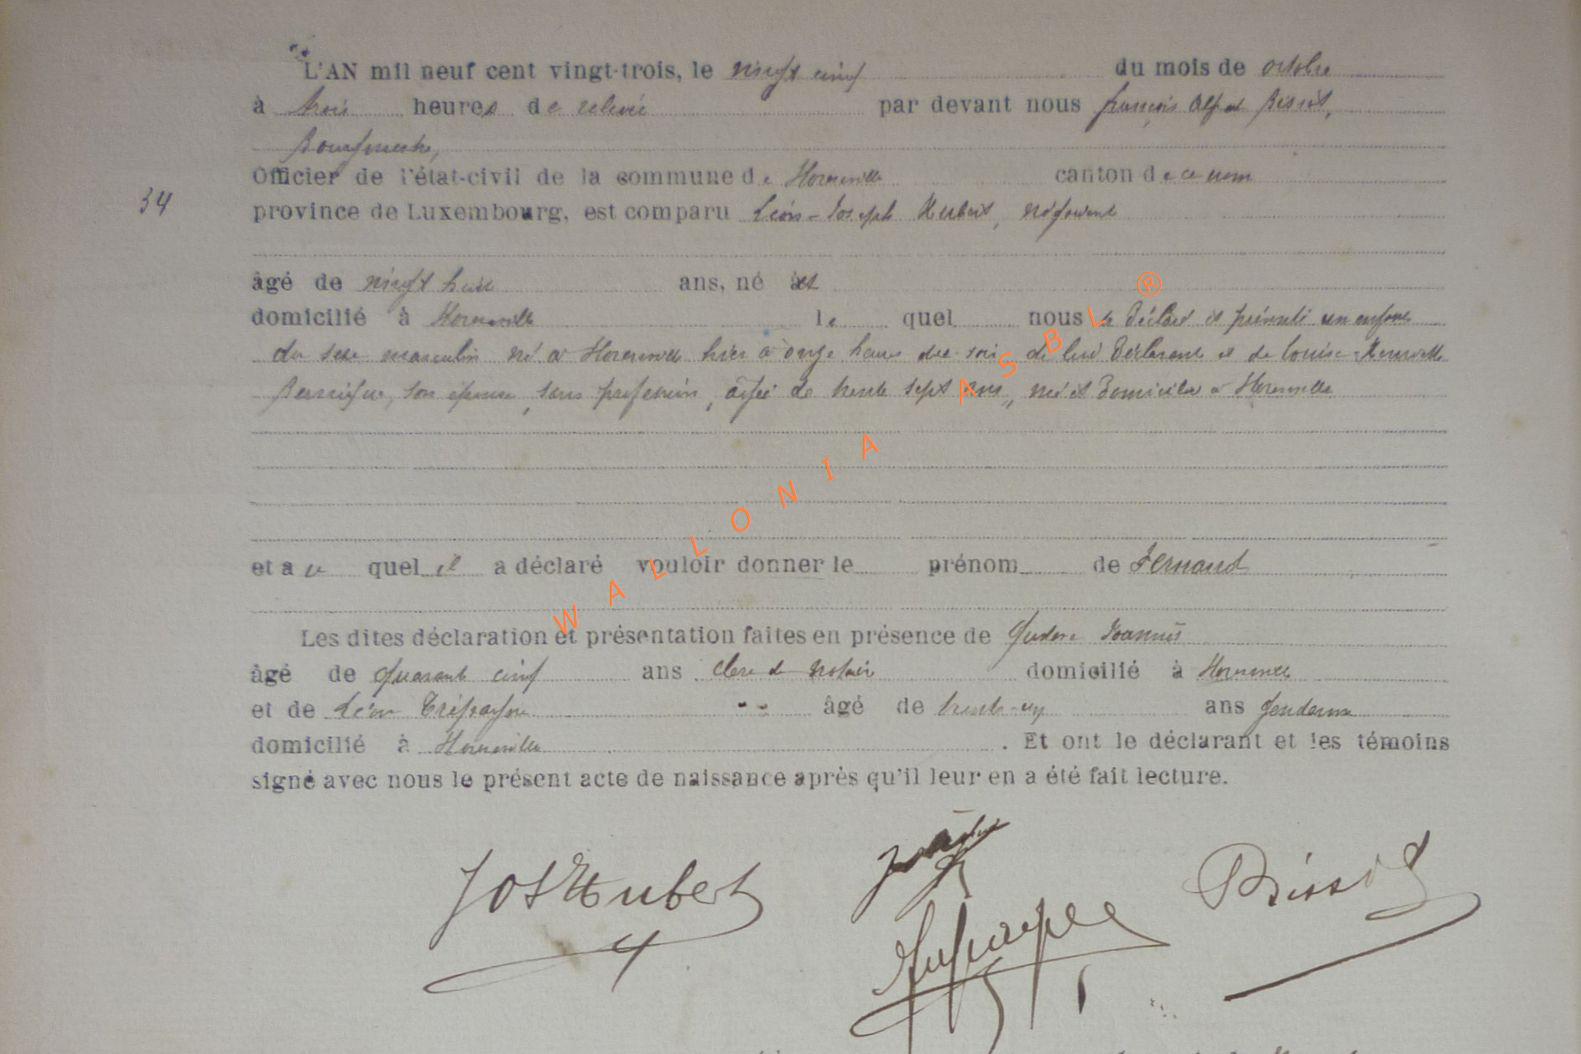 L'AN mil neuf cent vingt-trois, le vingt cinq du mois de octobre
à trois heures de relevée par devant nous françois Alfred Bissot,
Bourgmestre,
Officier de l'état-civil de la commune de canton de ce nom
34
province de Luxembourg, est comparu Léon-Joseph Hubert, négociant
âgé de vingt huit ans, né à et
domicilié à le quel nous a déclaré et présenté un enfant
du sexe masculin né à hier à onze heures du soir de lui déclarant et de louise
son épouse, sans profession, âgée de trente sept ans, née et domiciliée à
et au quel il a déclaré vouloir donner le prénom de Fernand
Les dites déclaration et présentation faites en présence de Joannès
âgé de quarante cinq ans clerc de notaire domicilié à
et de Léon âgé de trente-un ans gendarme
domicilié à . Et ont le déclarant et les témoins
signé avec nous le présent acte de naissance après qu'il leur en a été fait lecture.
Jos Hubert
Bissot
WALLONIA ASBL ®